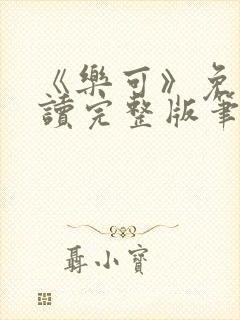 《樂可》免
讀完整版筆
聶小寶